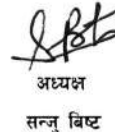 अध्यक्ष
सन्जु बिष्ट